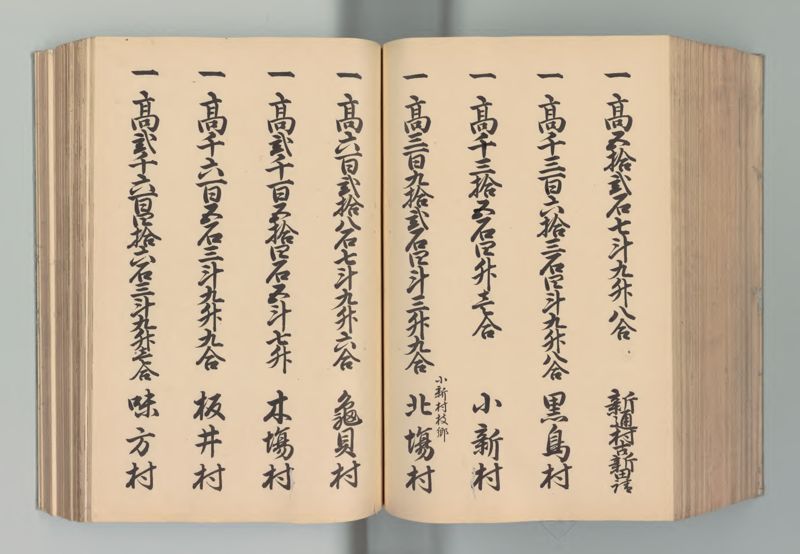 一 高五拾弐石七斗九升八合 新通村古新田
一 高千三百六拾三石四斗九升八合 黒鳥村
一 高千三拾五石四升壱合 小新村
小新村枝郷
一 高三百九拾弐石四斗三升九合 北場村
一 高六百弐拾八石七斗九升六合 亀貝村
一 高弐千百五拾四石五斗七升 木場村
一 高千六百五石三斗九升九合 板井村
一 高弐千六百四拾六石三斗九升壱合 味方村